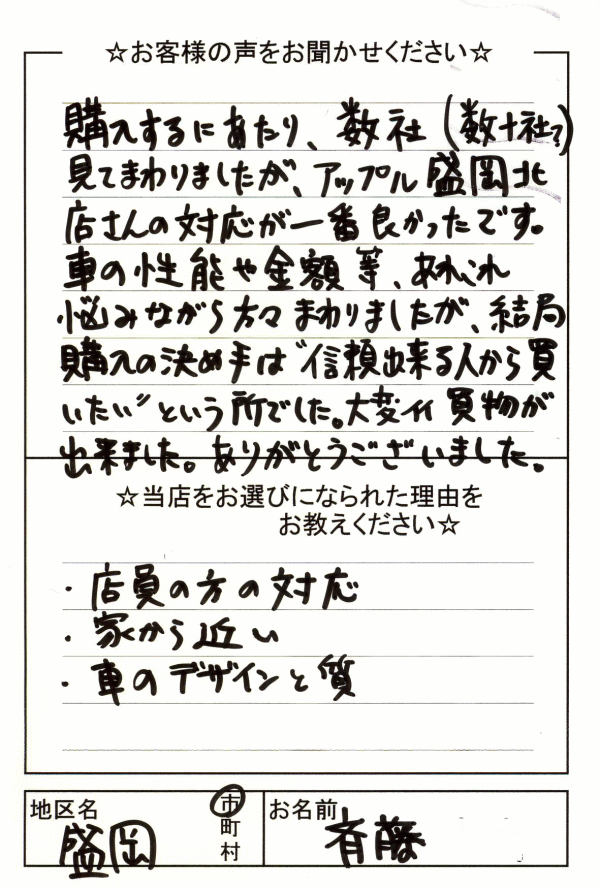 ☆お客様の声をお聞かせください☆
購入するにあたり、数社(数十社?)
見てまわりましたが、アップル盛岡北
店さんの対応が一番良かったです。
車の性能や金額等、あれこれ
悩みながら方々まわりましたが、結局
購入の決め手は"信頼出来る人から買
いたい"という所でした。大変イイ買物が
出来ました。ありがとうございました。
☆当店をお選びになられた理由を
お教えください☆
・店員の方の対応
・家から近い
・車のデザインと質
地区名
盛岡
市
町
村
お名前
斉藤